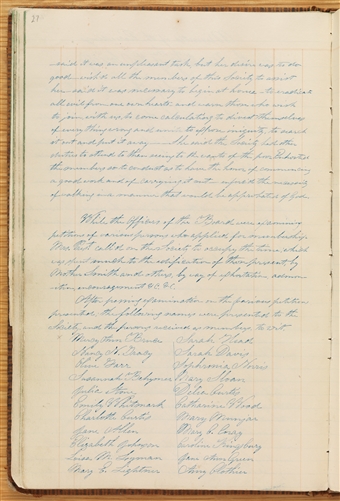 27
said it was an unpleasant task, but her desire was to do
good — wished all the members of this Society to assist
her — said it was necessary to begin at home — to eradicate
all evil from our own hearts and warn those who wish
to join with us to come calculating to divest themselves
of every thing wrong and unite to expose iniquity, to search
it out and put it away — She said the Society had other
duties to attend to than seeing to the wants of the poor. Exhorted
the members so to conduct as to have the honor of commencing
a good work and of carrying it out — urged the necessity
of walking in a manner that would be approbated of God.
While the Officers of the Board were examining
petitions of various persons who applied for membership
Mrs. Prest. called on the Society to occupy the time, which
was spent much to the edification of those present by
Mother Smith and others, by way of exhortation, admoni-
tion, encouragement &c. &c.
After passing examination on the various petitions
presented the following names were presented to the
Society, and the persons received as members to wit
Sarah Head
Nancy H. Sarah Davis
Farr Sophronia Norris
Susannah Mary Sloan
Julia Stone Delia Curtis
Emily Whitmarsh Catharine Wood
Charlotte Curtis Mary
Jane Allen Mary
Elizabeth Caroline Kingsbury
Jane
Mary C. Lightner Amy